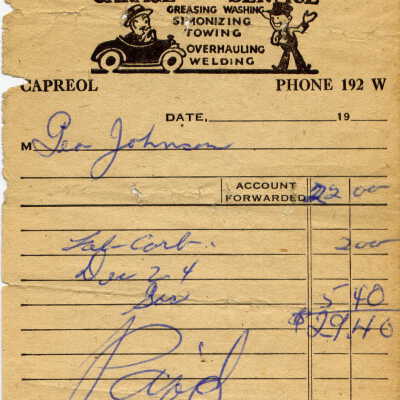 GREASING WASHING
SIMONIZING
TOWING
OVERHAULING
WELDING
CAPREOL PHONE 192 W
DATE, 19
M Geo Johnson
ACCOUNT FORWARDED 22 00
Carb. 200
Dec 24
5 40
$29.40
Paid